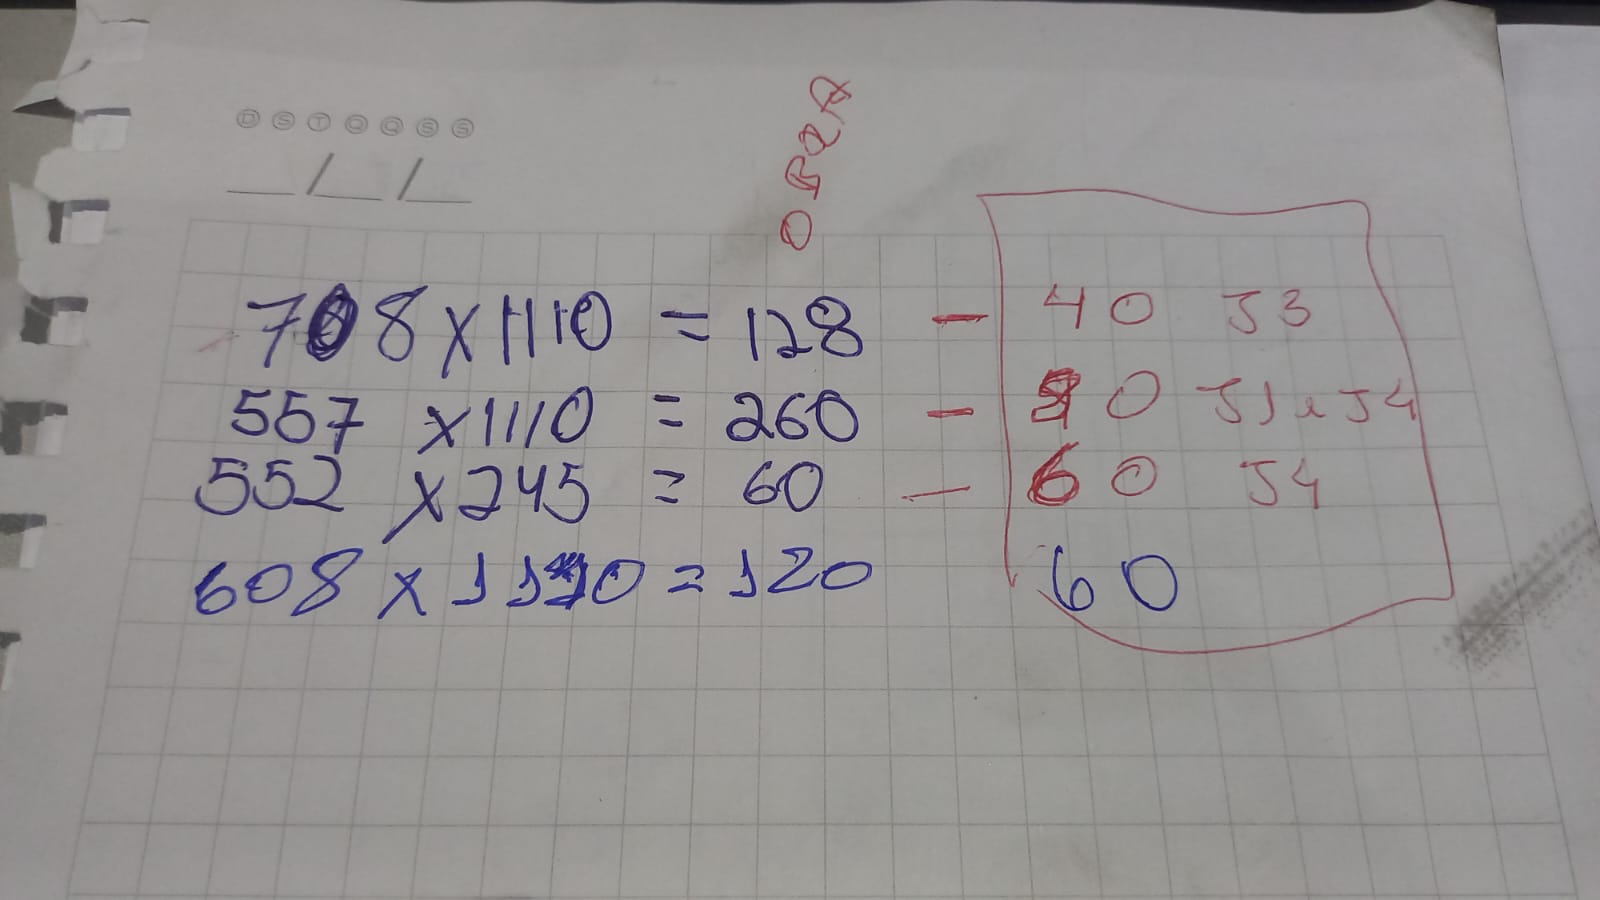 D S T Q Q S S
__/__/__
OBRA
708 x 1110 = 128 - 40 J3
557 x 1110 = 260 - 90 J1 e J4
552 x 245 = 60 - 60 J4
608 x 1110 = 120 60